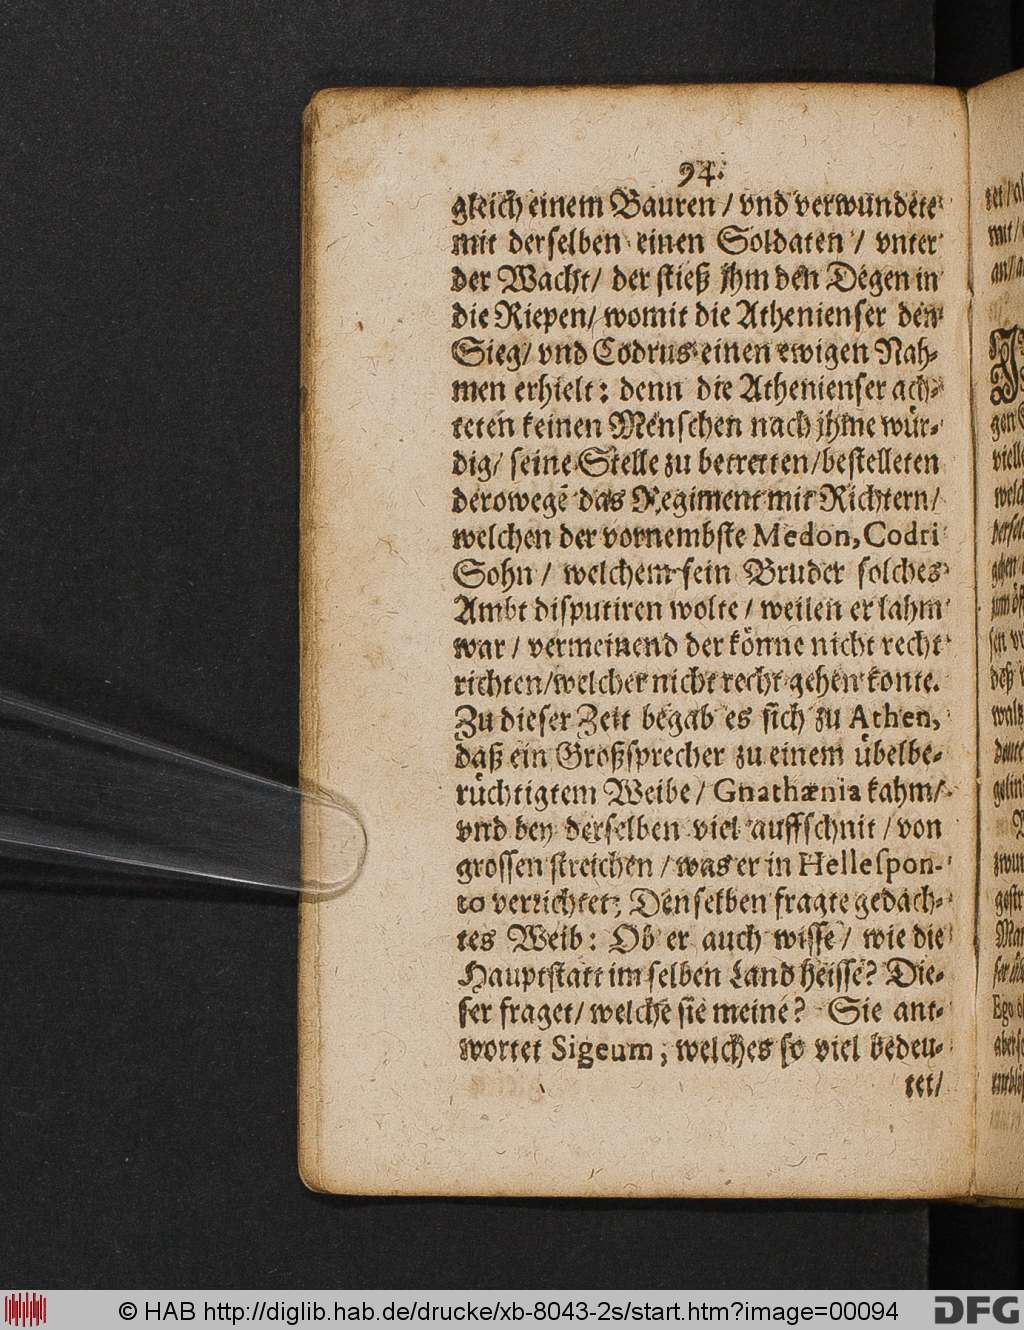 94.
gleich einem Bauren / vnd verwundete
mit derselben einen Soldaten / vnter
der Wacht / der stieß jhm den Degen in
die Riepen / womit die Athenienser den
Sieg / vnd Codrus einen ewigen Nah-
men erhielt: denn die Athenienser ach-
teten keinen Menschen nach jhme wür-
dig / seine Stelle zu betretten / bestelleten
derowegē das Regiment mit Richtern /
welchen der vornembste Medon, Codri
Sohn / welchem sein Bruder solches
Ambt disputiren wolte / weilen er lahm
war / vermeinend der könne nicht recht
richten / welcher nicht recht gehen konte.
Zu dieser Zeit begab es sich zu Athen,
daß ein Großsprecher zu einem übelbe-
rüchtigtem Weibe / Gnathænia kahm /
vnd bey derselben viel auffschnit / von
grossen streichen / was er in Hellespon-
to verrichtet; Denselben fragte gedach-
tes Weib: Ob er auch wisse / wie die
Hauptstatt im selben Land heisse? Die-
ser fraget / welche sie meine? Sie ant-
wortet Sigeum, welches so viel bedeu-
tet /
© HAB http://diglib.hab.de/drucke/xb-8043-2s/start.htm?image=00094
DFG